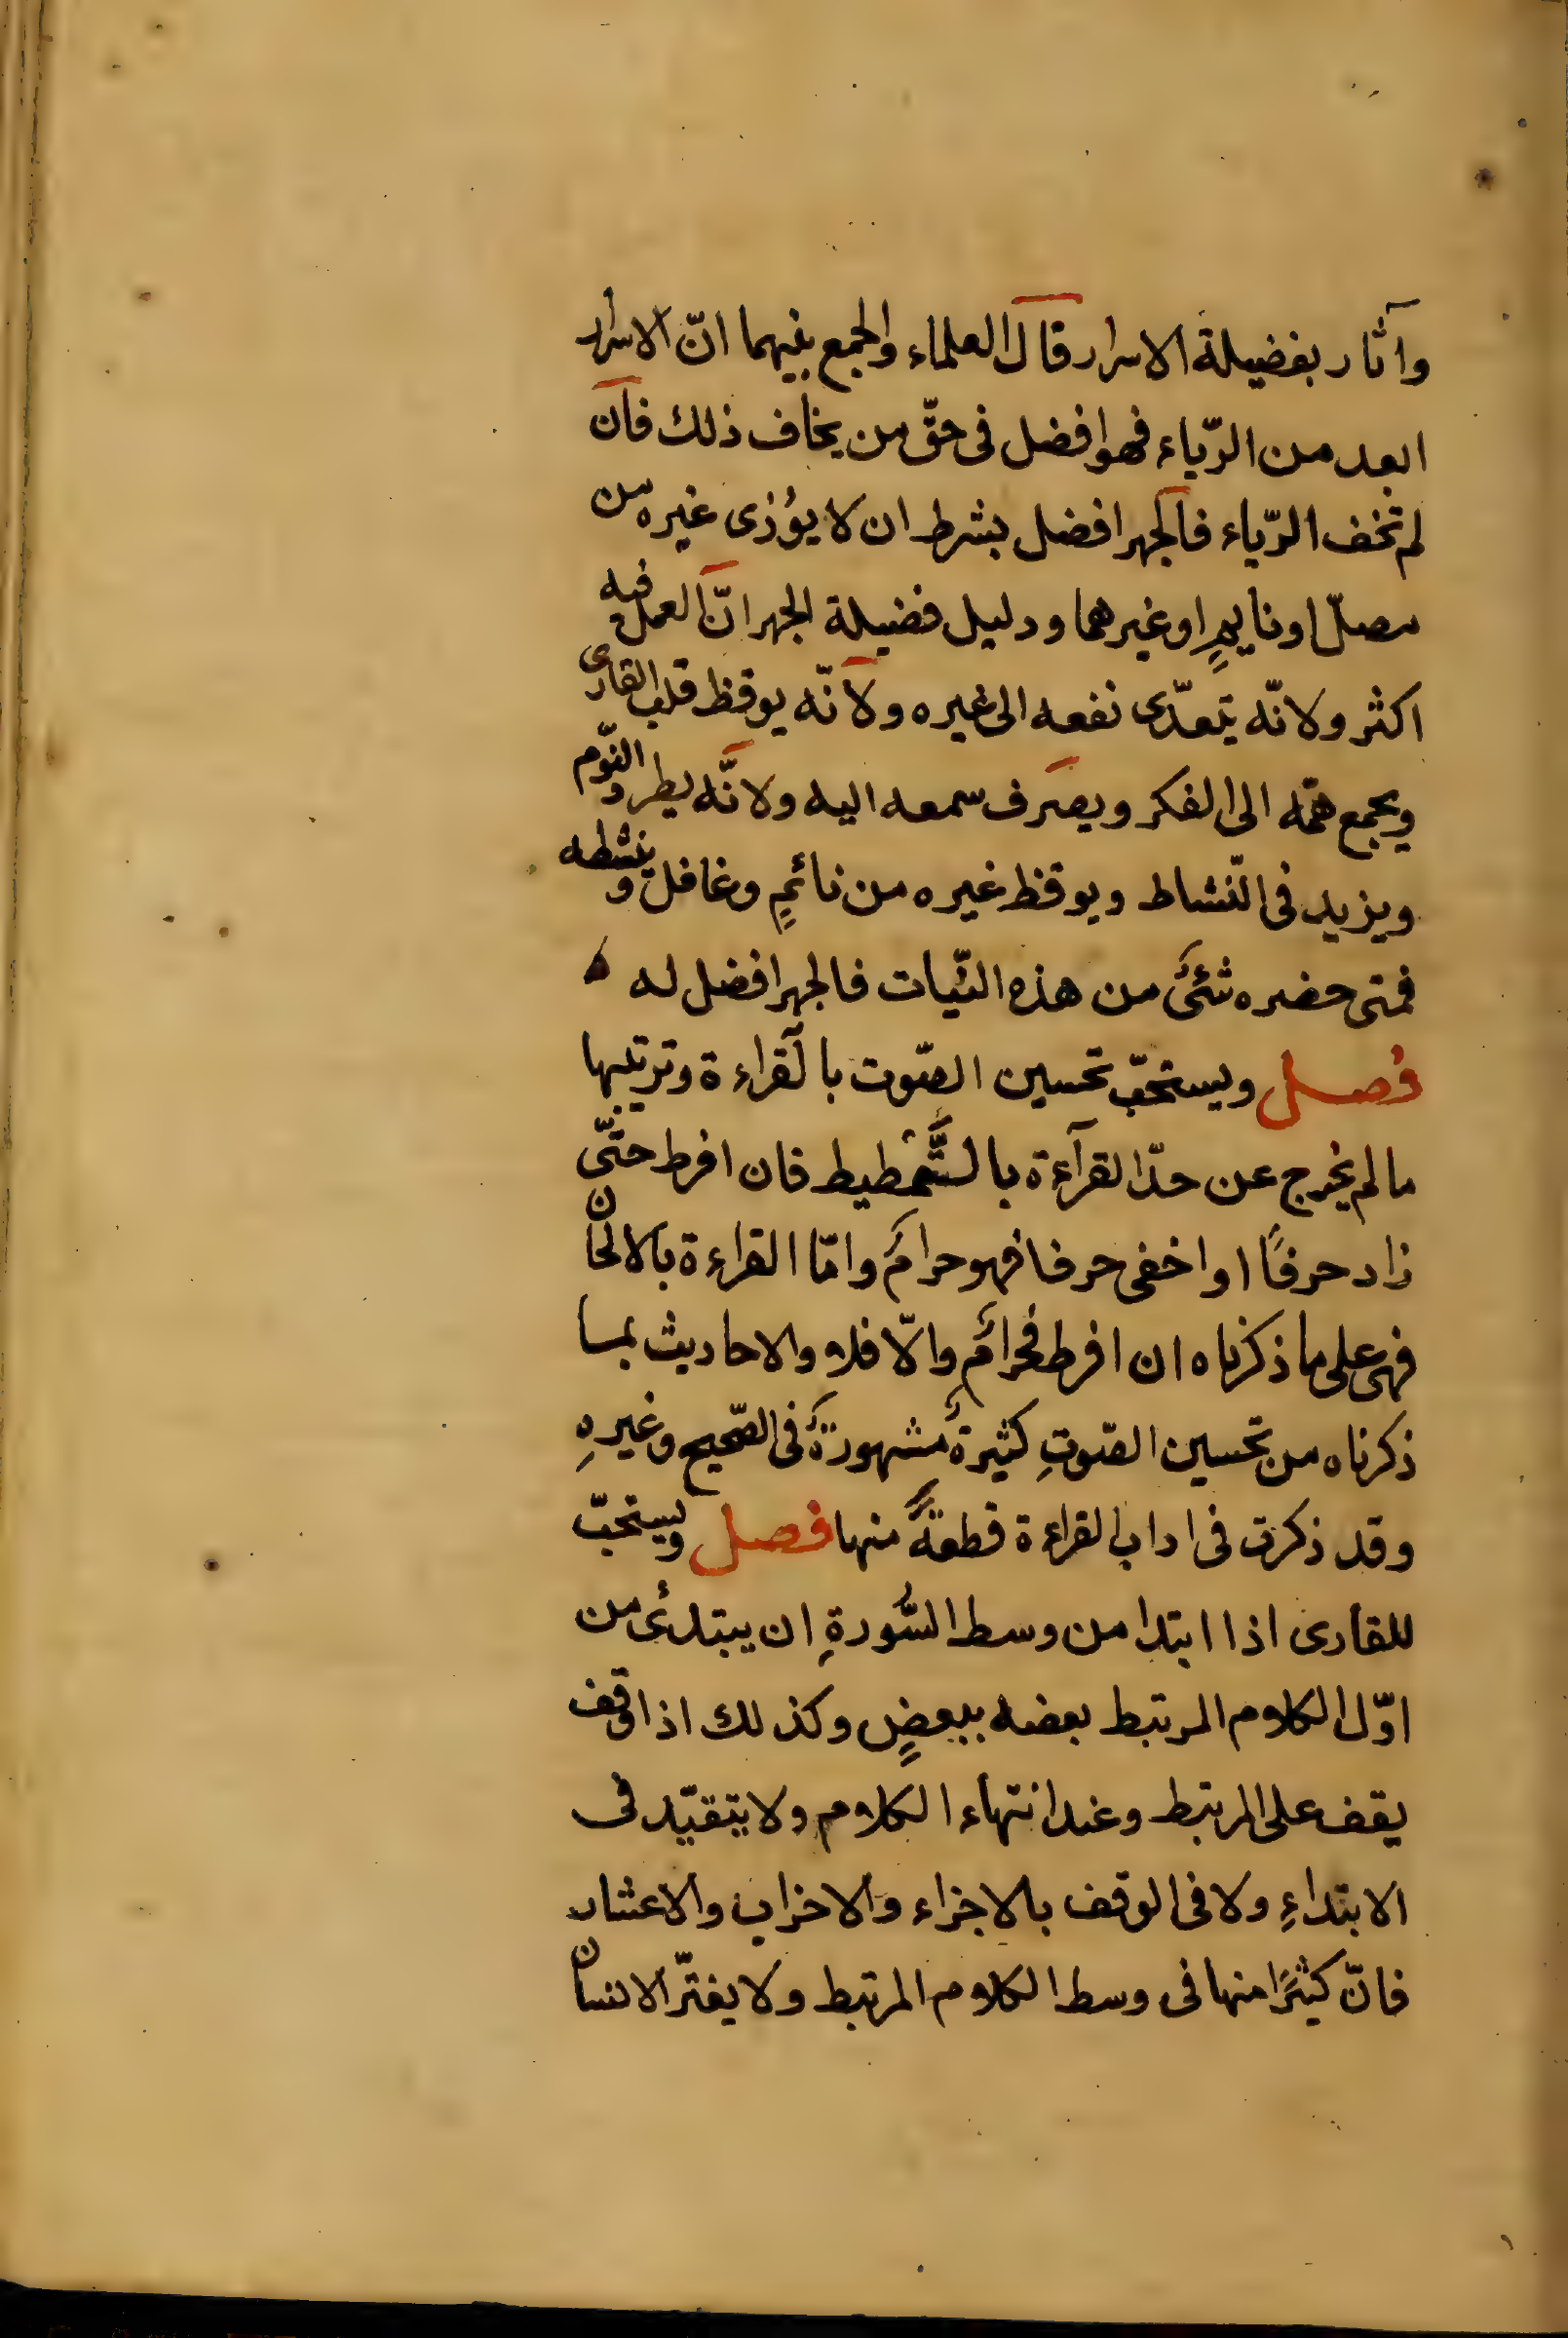 وآثار بفضيلة الاسرار قال العلماء والجمع بينهما انّ الاسرار
ابعد من الرّياء فهو افضل فى حقّ من يخاف ذلك فان
لم تخف الرّياء فالجهر افضل بشرط ان لا يؤذى غيره من
مصلّ او نايمٍ او غيرهما ودليل فضيلة الجهر انّ العمل فيه
اكثر ولانّه يتعدّى نفعه الى غيره ولانّه يوقظ قلب القارى
ويجمع همّه الى الفكر ويصرف سمعه اليه ولانّه يطرد النّوم
ويزيد فى النّشاط ويوقظ غيره من نائمٍ وغافل وينشطه
فمتى حضره شئىٌ من هذه النّيات فالجهر افضل له
فصل ويستحبّ تحسين الصّوت بالقراءة وترتيبها
ما لم يخرج عن حدّ القرآءة بالتّمطيط فان افرط حتّى
زاد حرفًا او اخفى حرفا فهو حرامٌ وامّا القراءة بالالحان
فهى على ما ذكرناه ان افرط فحرامٌ والّا فلا والاحاديث بما
ذكرناه من تحسين الصّوتِ كثيرةٌ مشهورةٌ فى الصّحيح وغيرهِ
وقد ذكرت فى اداب القراءة قطعةً منها فصل ويستحبّ
للقارى اذا ابتدا من وسط السُّورةِ ان يبتدئ من
اوّل الكلام المرتبط بعضه ببعضٍ وكذلك اذا وقف
يقف على المرتبط وعند انتهاء الكلام ولا يتقيّد فى
الابتداءِ ولا فى الوقف بالاجزاء والاحزاب والاعشار
فانّ كثيرًا منها فى وسط الكلام المرتبط ولا يغترّ الانسان